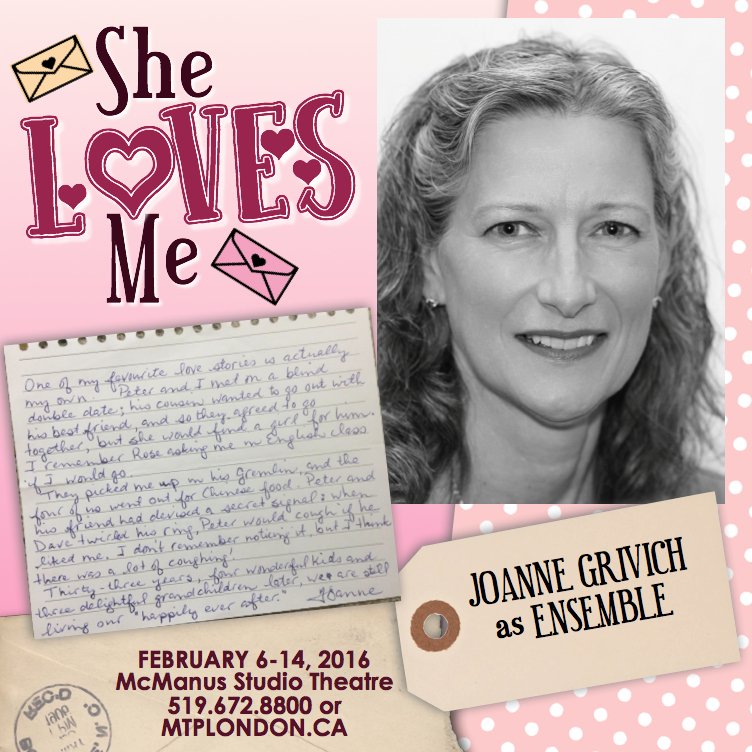 She
LOVES
Me
One of my favourite love stories is actually
my own. Peter and I met on a blind
double date; his cousin wanted to go out with
his best friend, and so they agreed to go
together, but she would find a girl for him.
I remember Rose asking me in English class
if I would go.
They picked me up in his Gremlin, and the
four of us went out for Chinese food. Peter and
his friend had devised a secret signal: when
Dave twirled his ring, Peter would cough if he
liked me. I don't remember noticing it, but I think
there was a lot of coughing!
Thirty-three years, four wonderful kids and
three delightful grandchildren later, we are still
living our "happily ever after."
Joanne
JOANNE GRIVICH
as ENSEMBLE
FEBRUARY 6-14, 2016
McManus Studio Theatre
519.672.8800 or
MTPLONDON.CA